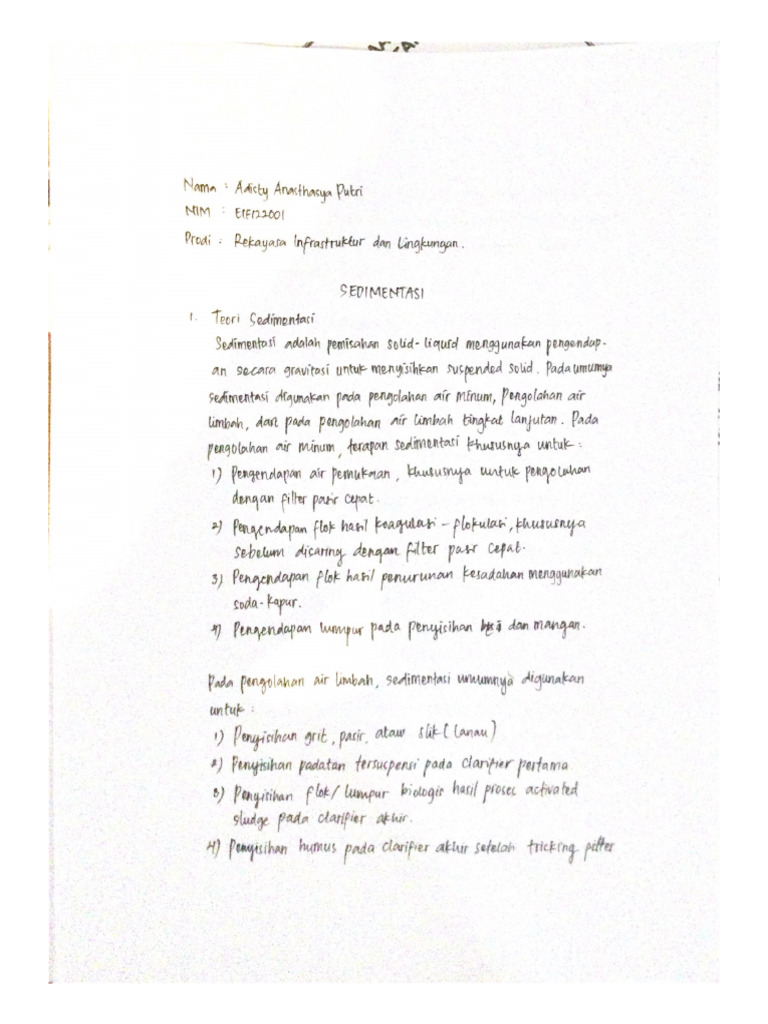 Nama : Adisty Anasthasya Putri
NIM : E1F122001
Prodi : Rekayasa Infrastruktur dan Lingkungan.
SEDIMENTASI
1. Teori Sedimentasi
Sedimentasi adalah pemisahan solid-liquid menggunakan pengendap-
an secara gravitasi untuk menyisihkan suspended solid. Pada umumnya
sedimentasi digunakan pada pengolahan air minum, Pengolahan air
limbah, dari pada pengolahan air limbah tingkat lanjutan. Pada
pengolahan air minum, terapan sedimentasi khususnya untuk :
1) Pengendapan air permukaan, khususnya untuk pengolahan
dengan filter pasir cepat.
2) Pengendapan flok hasil koagulasi - flokulasi, khususnya
sebelum disaring dengan filter pasir cepat.
3) Pengendapan flok hasil penurunan kesadahan menggunakan
soda-kapur.
4) Pengendapan lumpur pada penyisihan besi dan mangan.
Pada pengolahan air limbah, sedimentasi umumnya digunakan
untuk :
1) Penyisihan grit, pasir, atau slik (lanau)
2) Penyisihan padatan tersuspensi pada clarifier pertama.
3) Penyisihan flok/lumpur biologis hasil proses activated
sludge pada clarifier akhir.
4) Penyisihan humus pada clarifier akhir setelah tricking